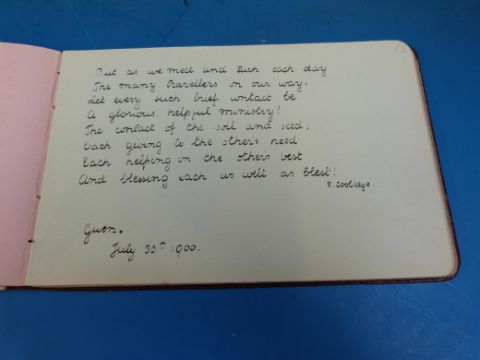 But as we meet and touch each day
The many travellers on our way.
Let every such brief contact be
A glorious, helpful ministry!
The contact of the soil and seed;
Each giving to the others need
Each helping on the others best
And blessing each as well as blest!
S. Coolidge.
Gwen.
July 30th 1900.